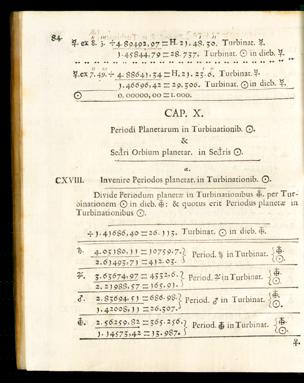 84
☿. ex 8. 3. ÷ 4.80402,97 = H. 21. 48. 30. Turbinat. ☿.
1.45844,79 = 28.737. Turbinat. ☉ in dieb. ☿.
☿. ex 7. 49. ÷ 4.88641,34 = H. 21. 23. 6. Turbinat. ☿.
1.46696,42 = 29.306. Turbinat. ☉ in dieb. ☿.
☉ 0.00000,00 = 1.000.
CAP. X.
Periodi Planetarum in Turbinationib. ☉.
&
Sectri Orbium planetar. in Sectris ☉.
a.
CXVIII. Invenire Periodos planetar. in Turbinationib. ☉.
Divide Periodum planetæ in Turbinationibus ♁. per Tur-
binationem ☉ in dieb. ♁: & quotus erit Periodus planetæ in
Turbinationibus ☉.
÷ 1.41686,40 = 26.113. Turbinat. ☉ in dieb. ♁.
♄. 4.03180,11 = 10759.7. } Period. ♄ in Turbinat. { ♁.
2.61493,71 = 412.03. ☉.
♃. 3.63674,97 = 4332.6. } Period. ♃ in Turbinat. { ♁.
2.21988,57 = 165.91. ☉.
♂. 2.83694,51 = 686.98. } Period. ♂ in Turbinat. { ♁.
1.42008,11 = 26.307. ☉.
♁. 2.56259,82 = 365.256. } Period. ♁ in Turbinat. { ♁.
1.14573,42 = 13.987. ☉.